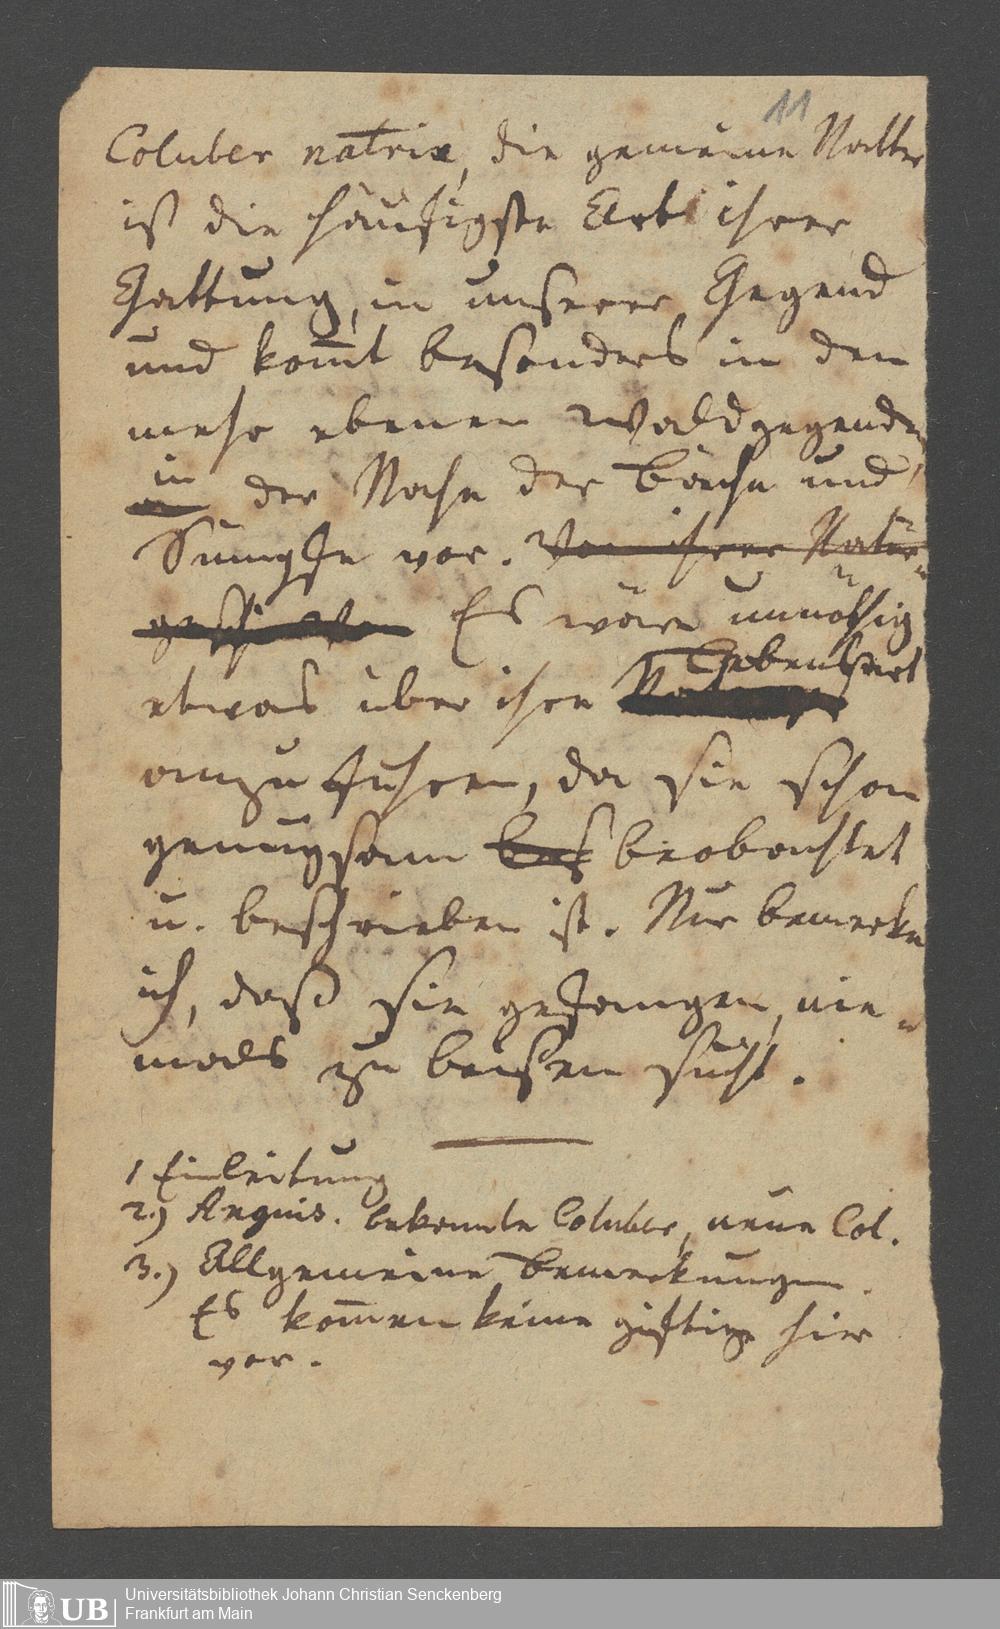 11
Coluber natrix, die gemeine Natter
ist die häufigste Art ihrer
Gattung, in unserer Gegend
und kom̄t besonders in den
mehr ebenen Waldgegenden,
in
der Nähe der Bäche und
Sümpfe vor. Von ihrer Natur-
Es wäre unnöthig
Lebensart
etwas über ihre
anzuführen, da sie schon
genugsam bes beobachtet
u. beschrieben ist. Nur bemerke
ich, daß sie gefangen, nie-
mals zu beißen sucht.
1 Einleitung
2.) Anguis. bekannte Coluber, neue Col.
3.) Allgemeine Bemerkungen.
Es kom̄en keine giftige hier
vor.
UB
Universitätsbibliothek Johann Christian Senckenberg
Frankfurt am Main